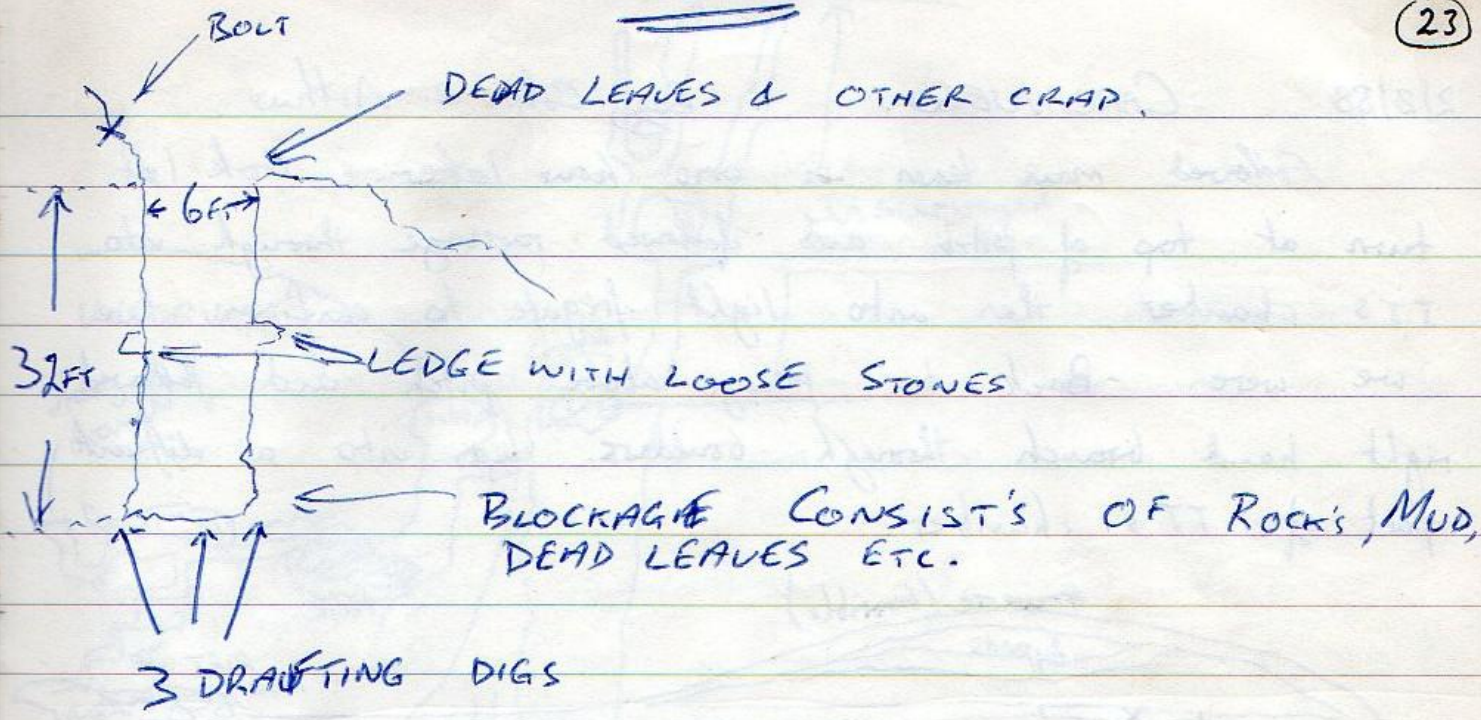 23
BOLT
DEAD LEAVES & OTHER CRAP.
6FT
32FT
LEDGE WITH LOOSE STONES
BLOCKAGE CONSIST'S OF ROCK'S, MUD,
DEAD LEAVES ETC.
3 DRAFTING DIGS